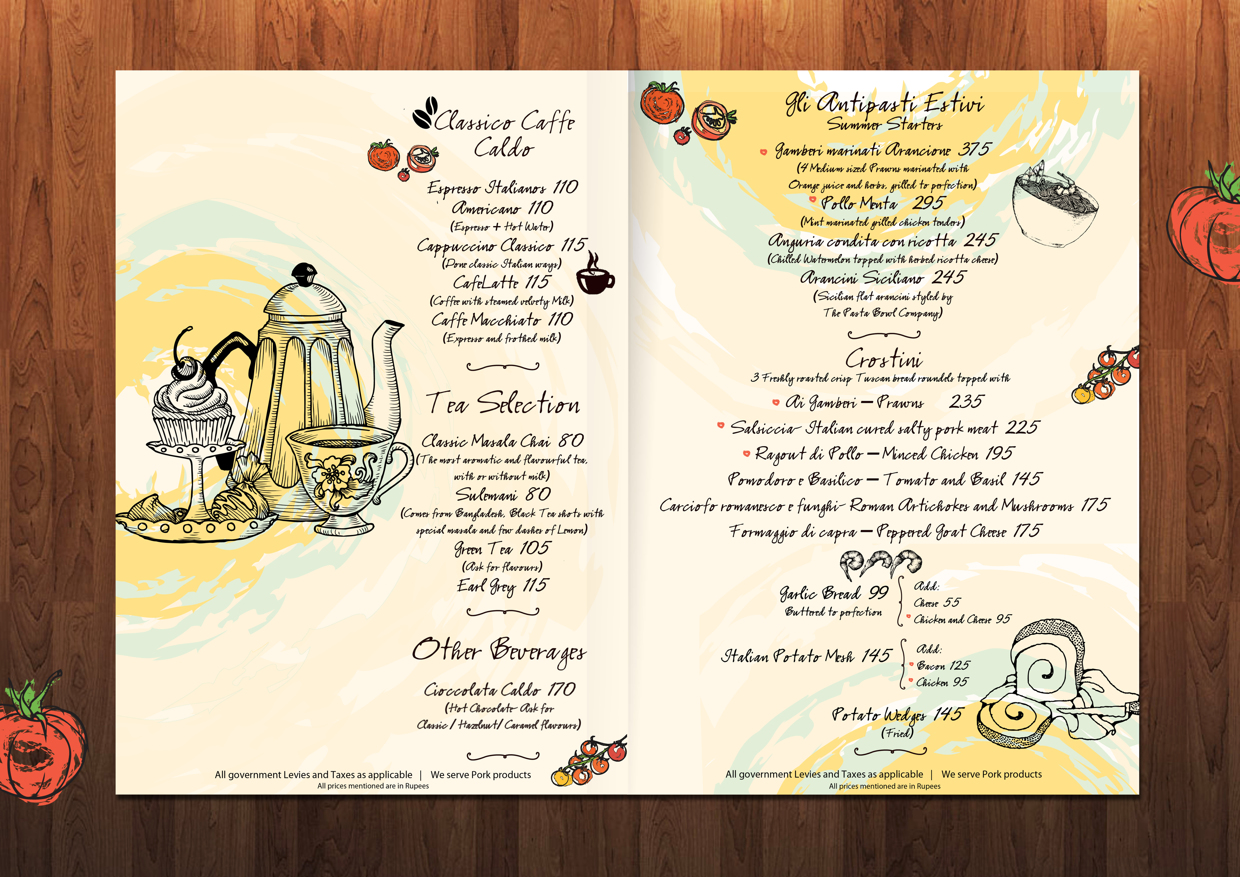 Classico Caffe
Caldo
Espresso Italianos 110
Americano 110
(Espresso + Hot Water)
Cappuccino Classico 115
(Done classic Italian ways)
CafeLatte 115
(Coffee with steamed velvety Milk)
Caffe Macchiato 110
(Expresso and frothed milk)
Tea Selection
Classic Masala Chai 80
(The most aromatic and flavourful tea,
with or without milk)
Sulemani 80
(Comes from Bangladesh, Black Tea shots with
special masala and few dashes of Lemon)
Green Tea 105
(Ask for flavours)
Earl Grey 115
Other Beverages
Cioccolata Caldo 170
(Hot Chocolate- Ask for
Classic / Hazelnut/ Caramel flavours)
All government Levies and Taxes as applicable | We serve Pork products
All prices mentioned are in Rupees
Gli Antipasti Estivi
Summer Starters
Gamberi marinati Arancione 375
(4 Medium sized Prawns marinated with
Orange juice and herbs, grilled to perfection)
Pollo Menta 295
(Mint marinated grilled chicken tenders)
Anguria condita con ricotta 245
(Chilled Watermelon topped with herbed ricotta cheese)
Arancini Siciliano 245
(Sicilian flat arancini styled by
The Pasta Bowl Company)
Crostini
3 Freshly roasted crisp Tuscan bread roundels topped with
Ai Gamberi – Prawns 235
Salsiccia- Italian cured salty pork meat 225
Ragout di Pollo – Minced Chicken 195
Pomodoro e Basilico – Tomato and Basil 145
Carciofo romanesco e funghi- Roman Artichokes and Mushrooms 175
Formaggio di capra – Peppered Goat Cheese 175
Garlic Bread 99
Buttered to perfection
Add:
Cheese 55
Chicken and Cheese 95
Italian Potato Mesh 145
Add:
Bacon 125
Chicken 95
Potato Wedges 145
(Fried)
All government Levies and Taxes as applicable | We serve Pork products
All prices mentioned are in Rupees